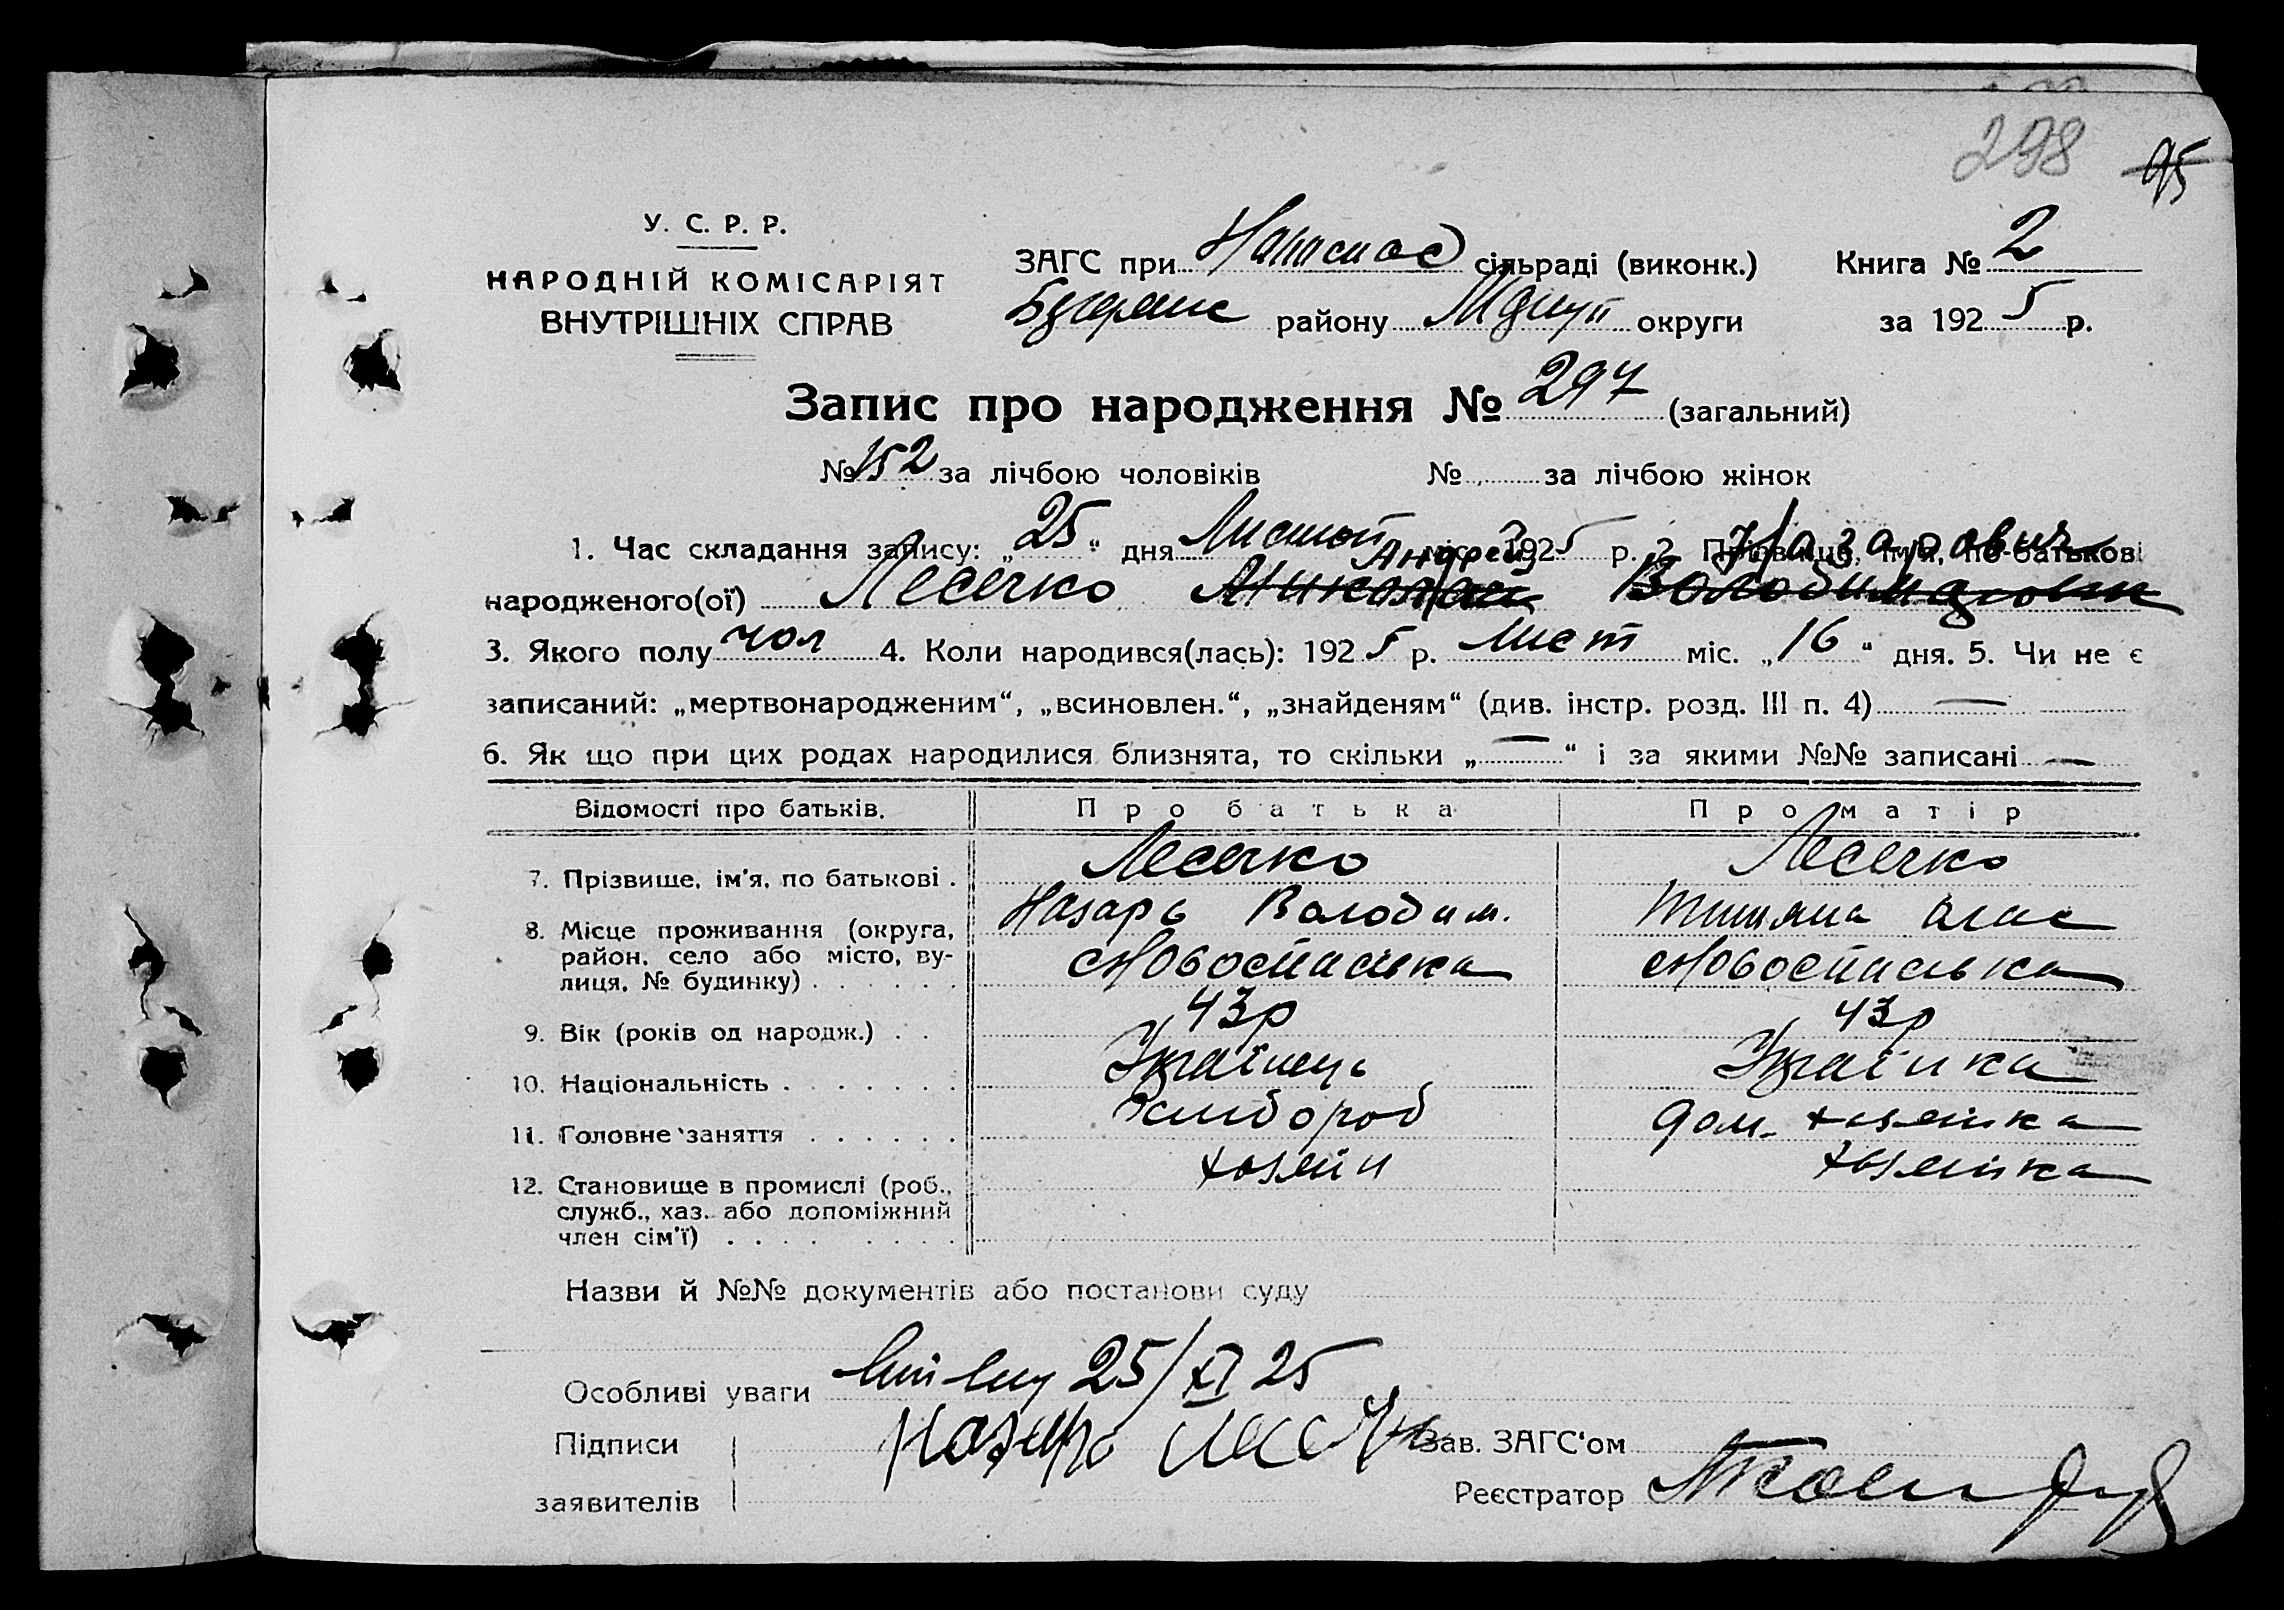 298 95
У. С. Р. Р.
НАРОДНІЙ КОМІСАРІЯТ
ВНУТРІШНІХ СПРАВ
ЗАГС при сільраді (виконк.) Книга № 2
району округи за 1925 р.
Запис про народження № 297 (загальний)
№ 152 за лічбою чоловіків № за лічбою жінок
Назарович
1. Час складання запису: „25“ дня міс. 1925 р. 2. Прізвище, ім'я, по-батькові
Андрей
народженого(ої) Лесечко Николай
3. Якого полу чол 4. Коли народився(лась): 1925 р. Лист міс. „16“ дня. 5. Чи не є
записаний: „мертвонародженим“, „всиновлен.“, „знайденям“ (див. інстр. розд. III п. 4) —
6. Як що при цих родах народилися близнята, то скільки „—“ і за якими №№ записані —
Відомості про батьків. Про батька Про матір
7. Прізвище, ім'я, по батькові . Лесечко Лесечко
Назарь Володим.
8. Місце проживання (округа, район, село або місто, ву-
лиця, № будинку) . . . . . . Новоспаська Новоспаська
9. Вік (років од народж.) . . 43р 43р
10. Національність . . . . . . . Українець Українка
11. Головне заняття . . . . . . дом. хозяйка
12. Становище в промислі (роб., хозяїн хозяйка
служб., хаз. або допоміжний
член сім'ї) . . . . . . . .
Назви й №№ документів або постанови суду
Особливі уваги 25/XI 25
Підписи Назарь Зав. ЗАГС'ом
заявителів Реєстратор